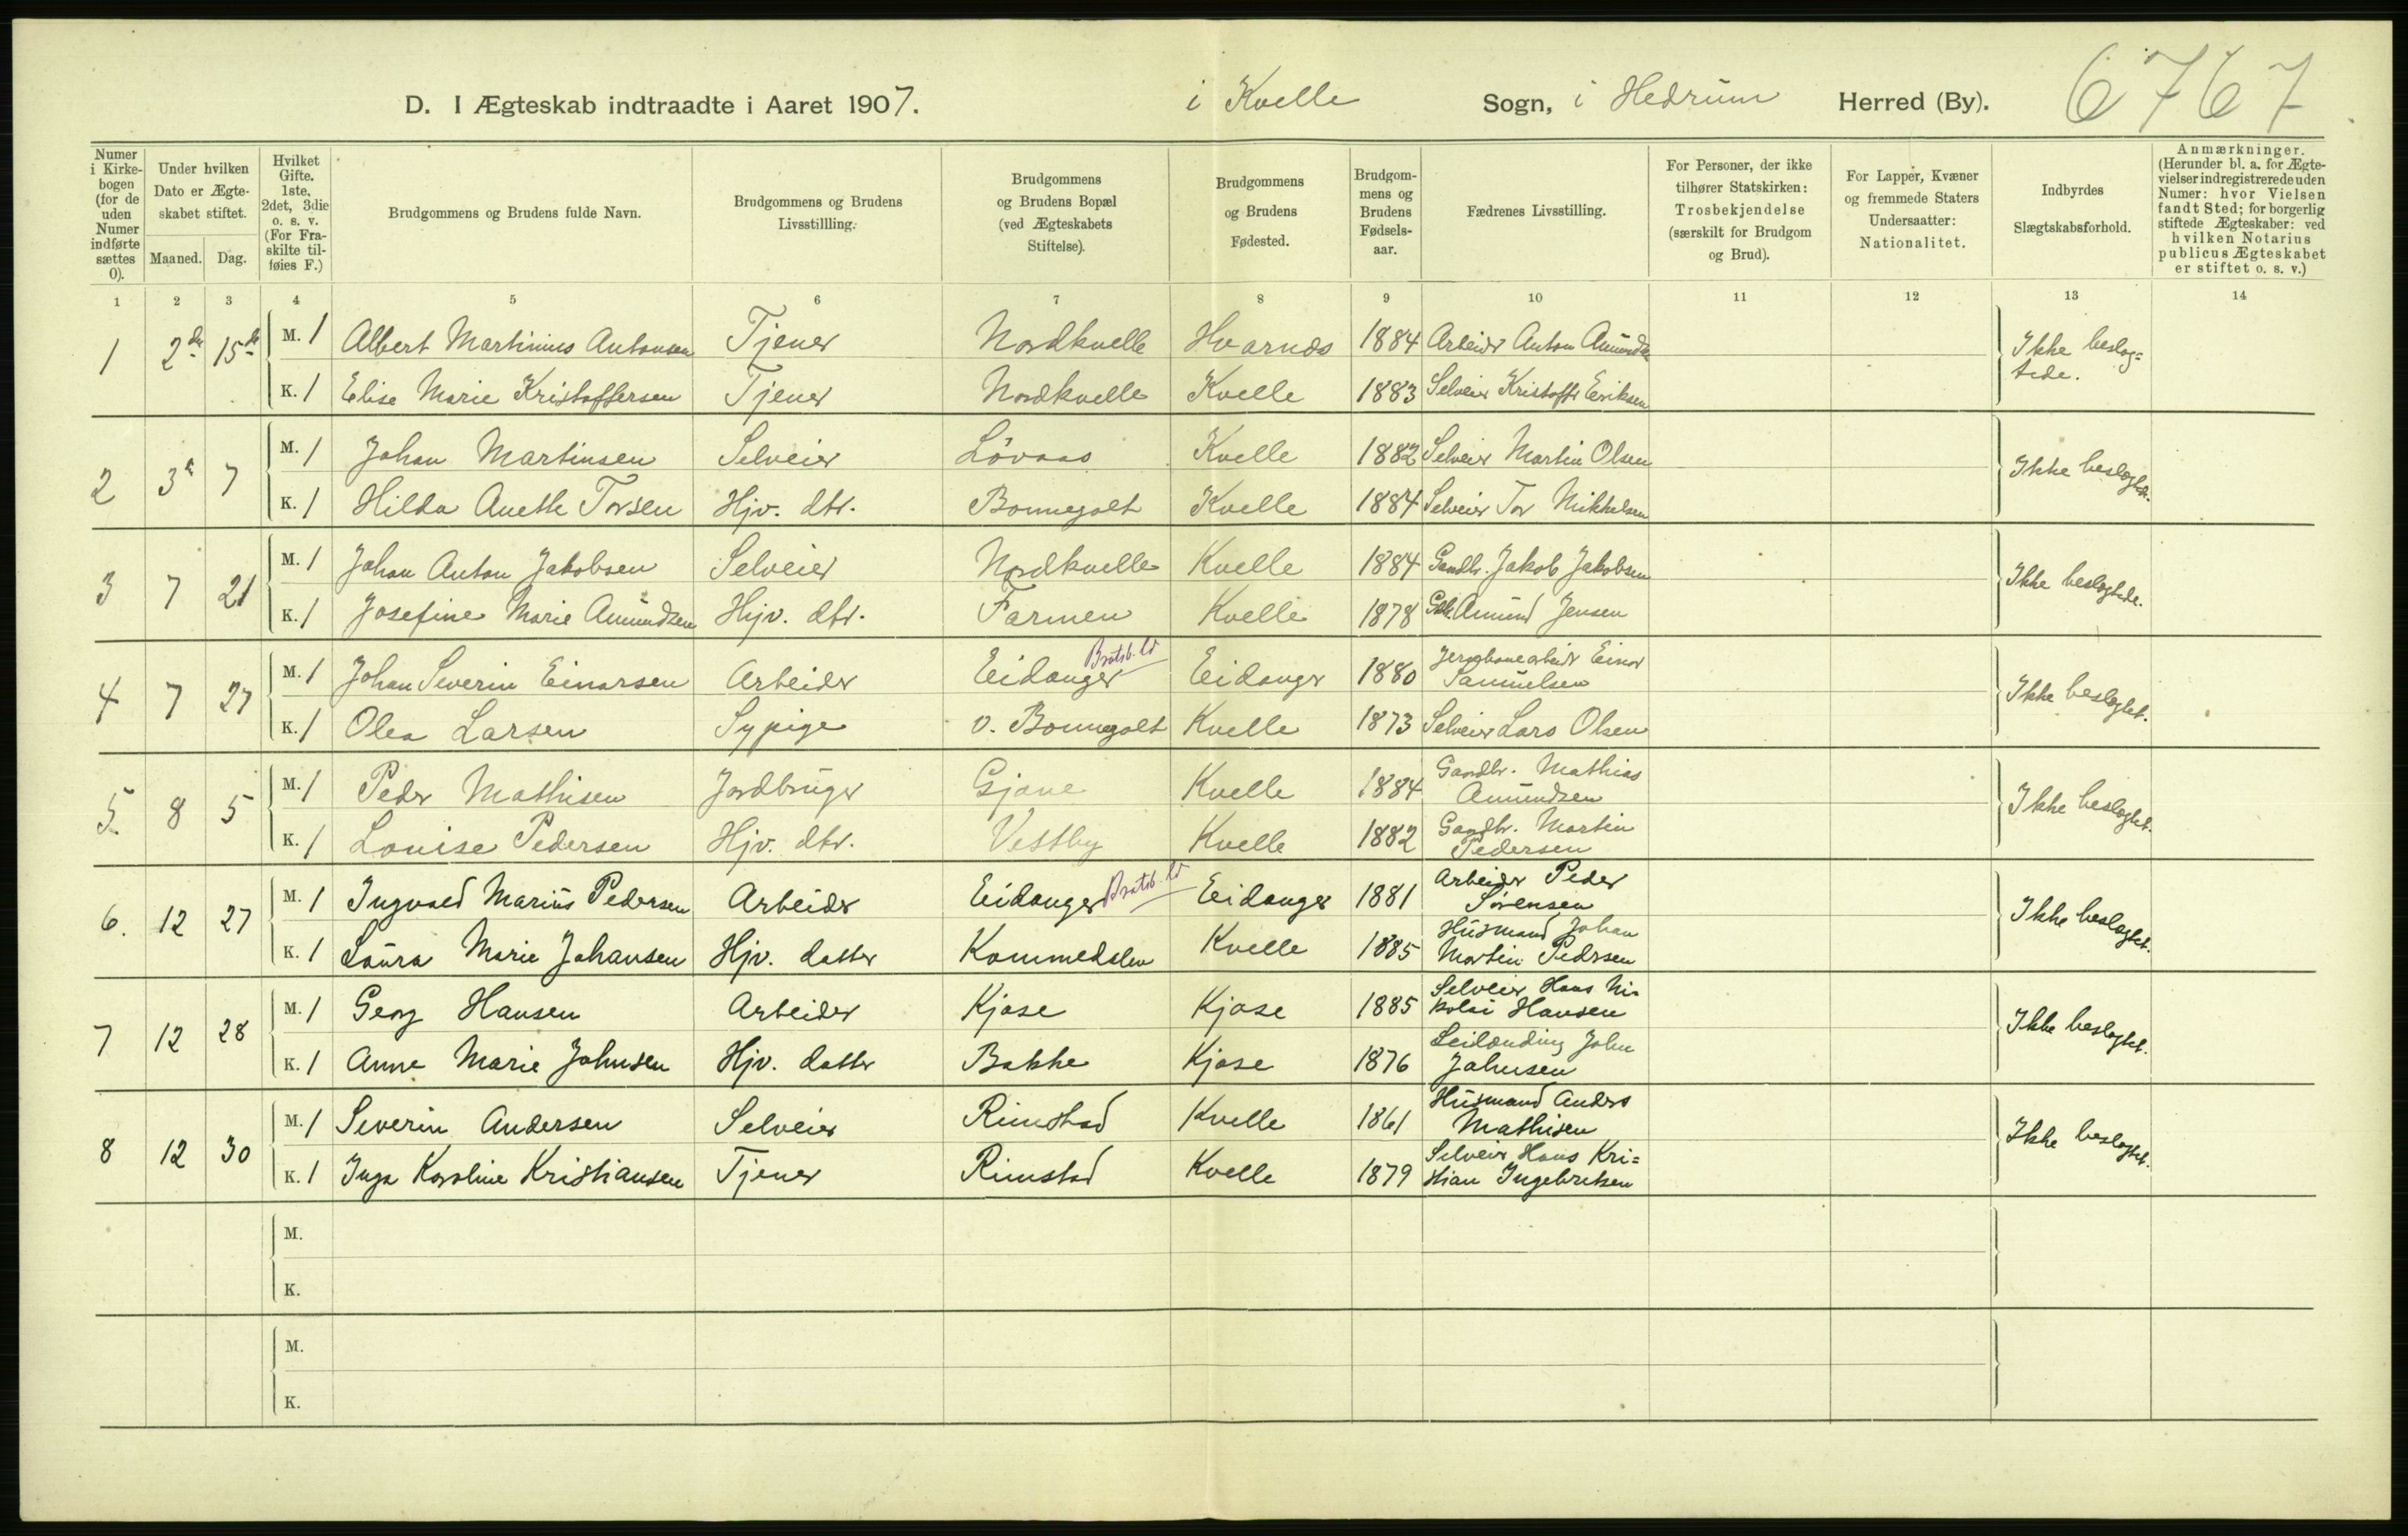 D. I Ægteskab indtraadte i Aaret 1907. i Kvelle Sogn, i Hedrum Herred (By). 6767
Numer i Kirkebogen (for de uden Numer indførte sættes 0). Under hvilken Dato er Ægteskabet stiftet. Maaned. Dag. Hvilket Gifte. 1ste, 2det, 3die o. s. v. (For Fraskilte tilføies F.) Brudgommens og Brudens fulde Navn. Brudgommens og Brudens Livsstillling. Brudgommens og Brudens Bopæl (ved Ægteskabets Stiftelse). Brudgommens og Brudens Fødested. Brudgommens og Brudens Fødselsaar. Fædrenes Livsstilling. For Personer, der ikke tilhører Statskirken: Trosbekjendelse (særskilt for Brudgom og Brud). For Lapper, Kvæner og fremmede Staters Undersaatter: Nationalitet. Indbyrdes Slægtskabsforhold. Anmærkninger. (Herunder bl. a. for Ægtevielser indregistrerede uden Numer: hvor Vielsen fandt Sted; for borgerlig stiftede Ægteskaber: ved hvilken Notarius publicus Ægteskabet er stiftet o. s. v.)
1 2 3 4 5 6 7 8 9 10 11 12 13 14
1 2den 15de M. 1 Albert Martinius Antonsen Tjener Nordkvelle Hvarnes 1884 Arbeider Anton Amundsen Ikke beslog=
tede.
K. 1 Elise Marie Kristoffersen Tjener Nordkvelle Kvelle 1883 Selveier Kristoffer Eriksen
2 3e 7 M. 1 Johan Martinsen Selveier Lövaas Kvelle 1882 Selveier Martin Olsen Ikke beslogtet.
K. 1 Hilda Anette Torsen Hjv. dtr. Bonnegolt Kvelle 1884 Selveier Tor Mikkelsen
3 7 21 M. 1 Johan Anton Jakobsen Selveier Nordkvelle Kvelle 1884 Gaardbr. Jakob Jakobsen Ikke beslogtede.
K. 1 Josefine Marie Amundsen Hjv. dtr. Farmen Kvelle 1878 Gbr. Amund Jensen
4 7 27 M. 1 Johan Severin Einarsen Arbeider Eidanger Bratsb. Eidanger 1880 Jernbanearbeider Einar
Samuelsen Ikke beslogtet.
K. 1 Olea Larsen Sypige v. Bonnegolt Kvelle 1873 Selveier Lars Olsen
5. 8 5 M. 1 Peder Mathisen Jordbruger Gjone Kvelle 1884 Gaardbr. Mathias
Amundsen Ikke beslogtet.
K. 1 Louise Pedersen Hjv. dtr. Vestby Kvelle 1882 Gaardbr. Martin
Pedersen
6. 12 27 M. 1 Ingvald Marius Pedersen Arbeider Eidanger Bratsb. Eidanger 1881 Arbeider Peder
Sörensen Ikke beslogtet.
K. 1 Laura Marie Johansen Hjv. datter Kommedalen Kvelle 1885 Husmand Johan
Martin Pedersen
7 12 28 M. 1 Georg Hansen Arbeider Kjose Kjose 1885 Selveier Hans Ni-
kolai Hansen Ikke beslogtet.
K. 1 Anne Marie Johnsen Hjv. datter Bakke Kjose 1876 Leilænding John
Johnsen
8 12 30 M. 1 Severin Andersen Selveier Rimstad Kvelle 1861 Husmand Anders
Mathisen Ikke beslogtet.
K. 1 Inga Karoline Kristiansen Tjener Rimstad Kvelle 1879 Selveier Hans Kri=
stian Ingebretsen
M.
K.
M.
K.